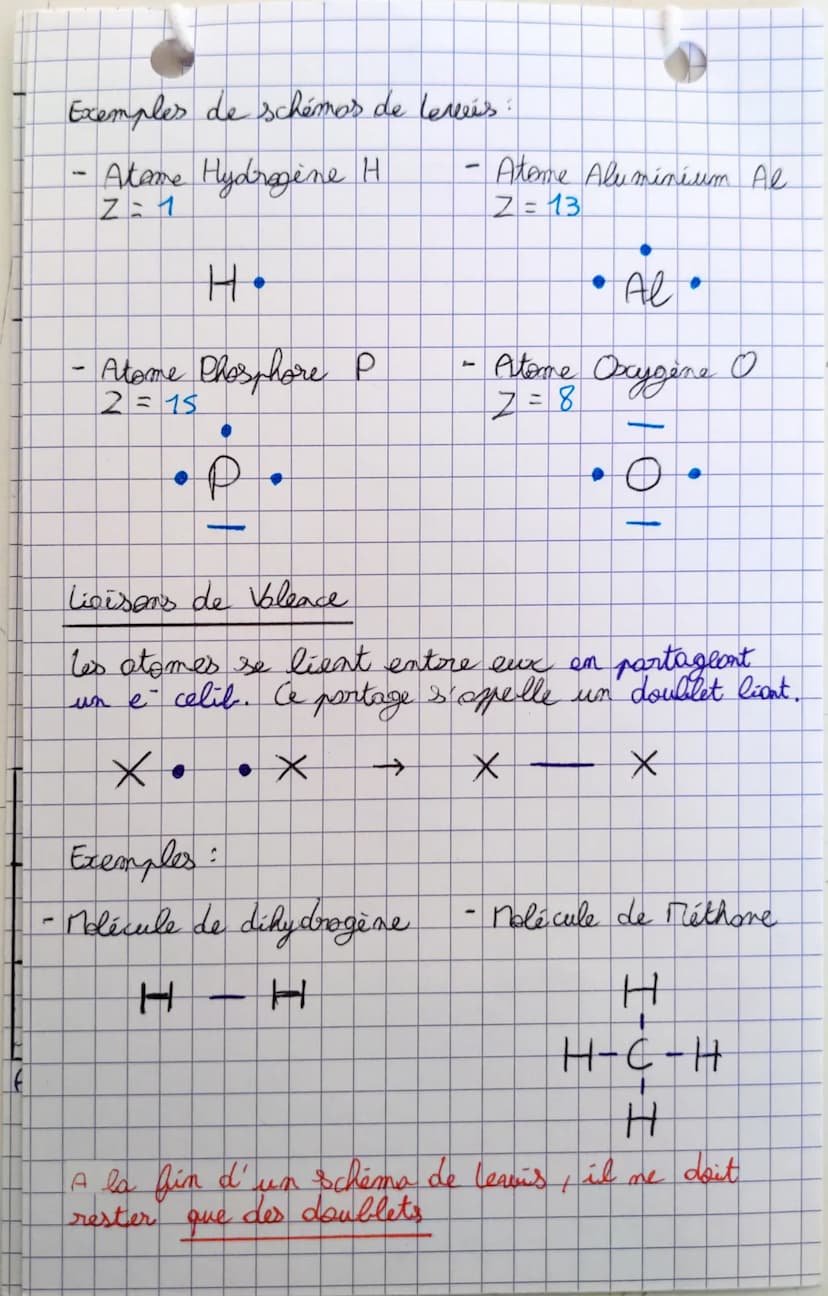 Exemples de schémas de Lewis :
- Atome Hydrogène H
Z = 1
H •
- Atome Aluminium Al
Z = 13
• Al •
- Atome Phosphore P
Z = 15
• P •
- Atome Oxygène O
Z = 8
• O •
Liaisons de Valence
Les atomes se lient entre eux en partageant
un e⁻ celib. Ce partage s'appelle un doublet liant.
X • • X → X — X
Exemples :
- Molécule de dihydrogène
H — H
- Molécule de Méthane
H
H - C - H
H
A la fin d'un schéma de Lewis, il ne doit
rester que des doublets